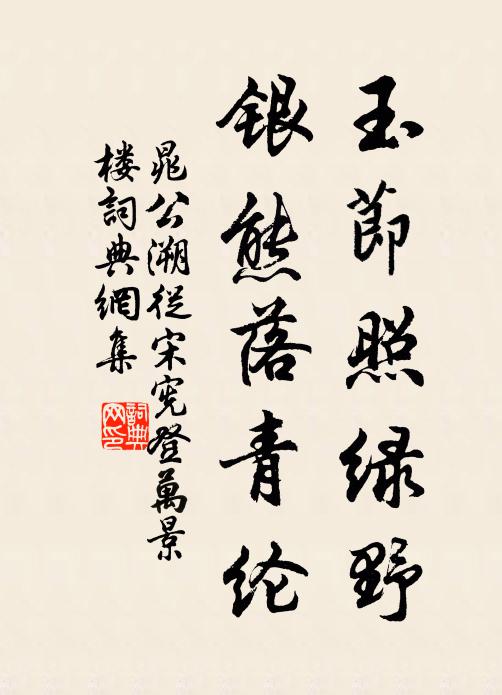 玉節照绿野
银熊落青纶
晁公溯從宋宪登萬景
楼詞典網集
詞典网印